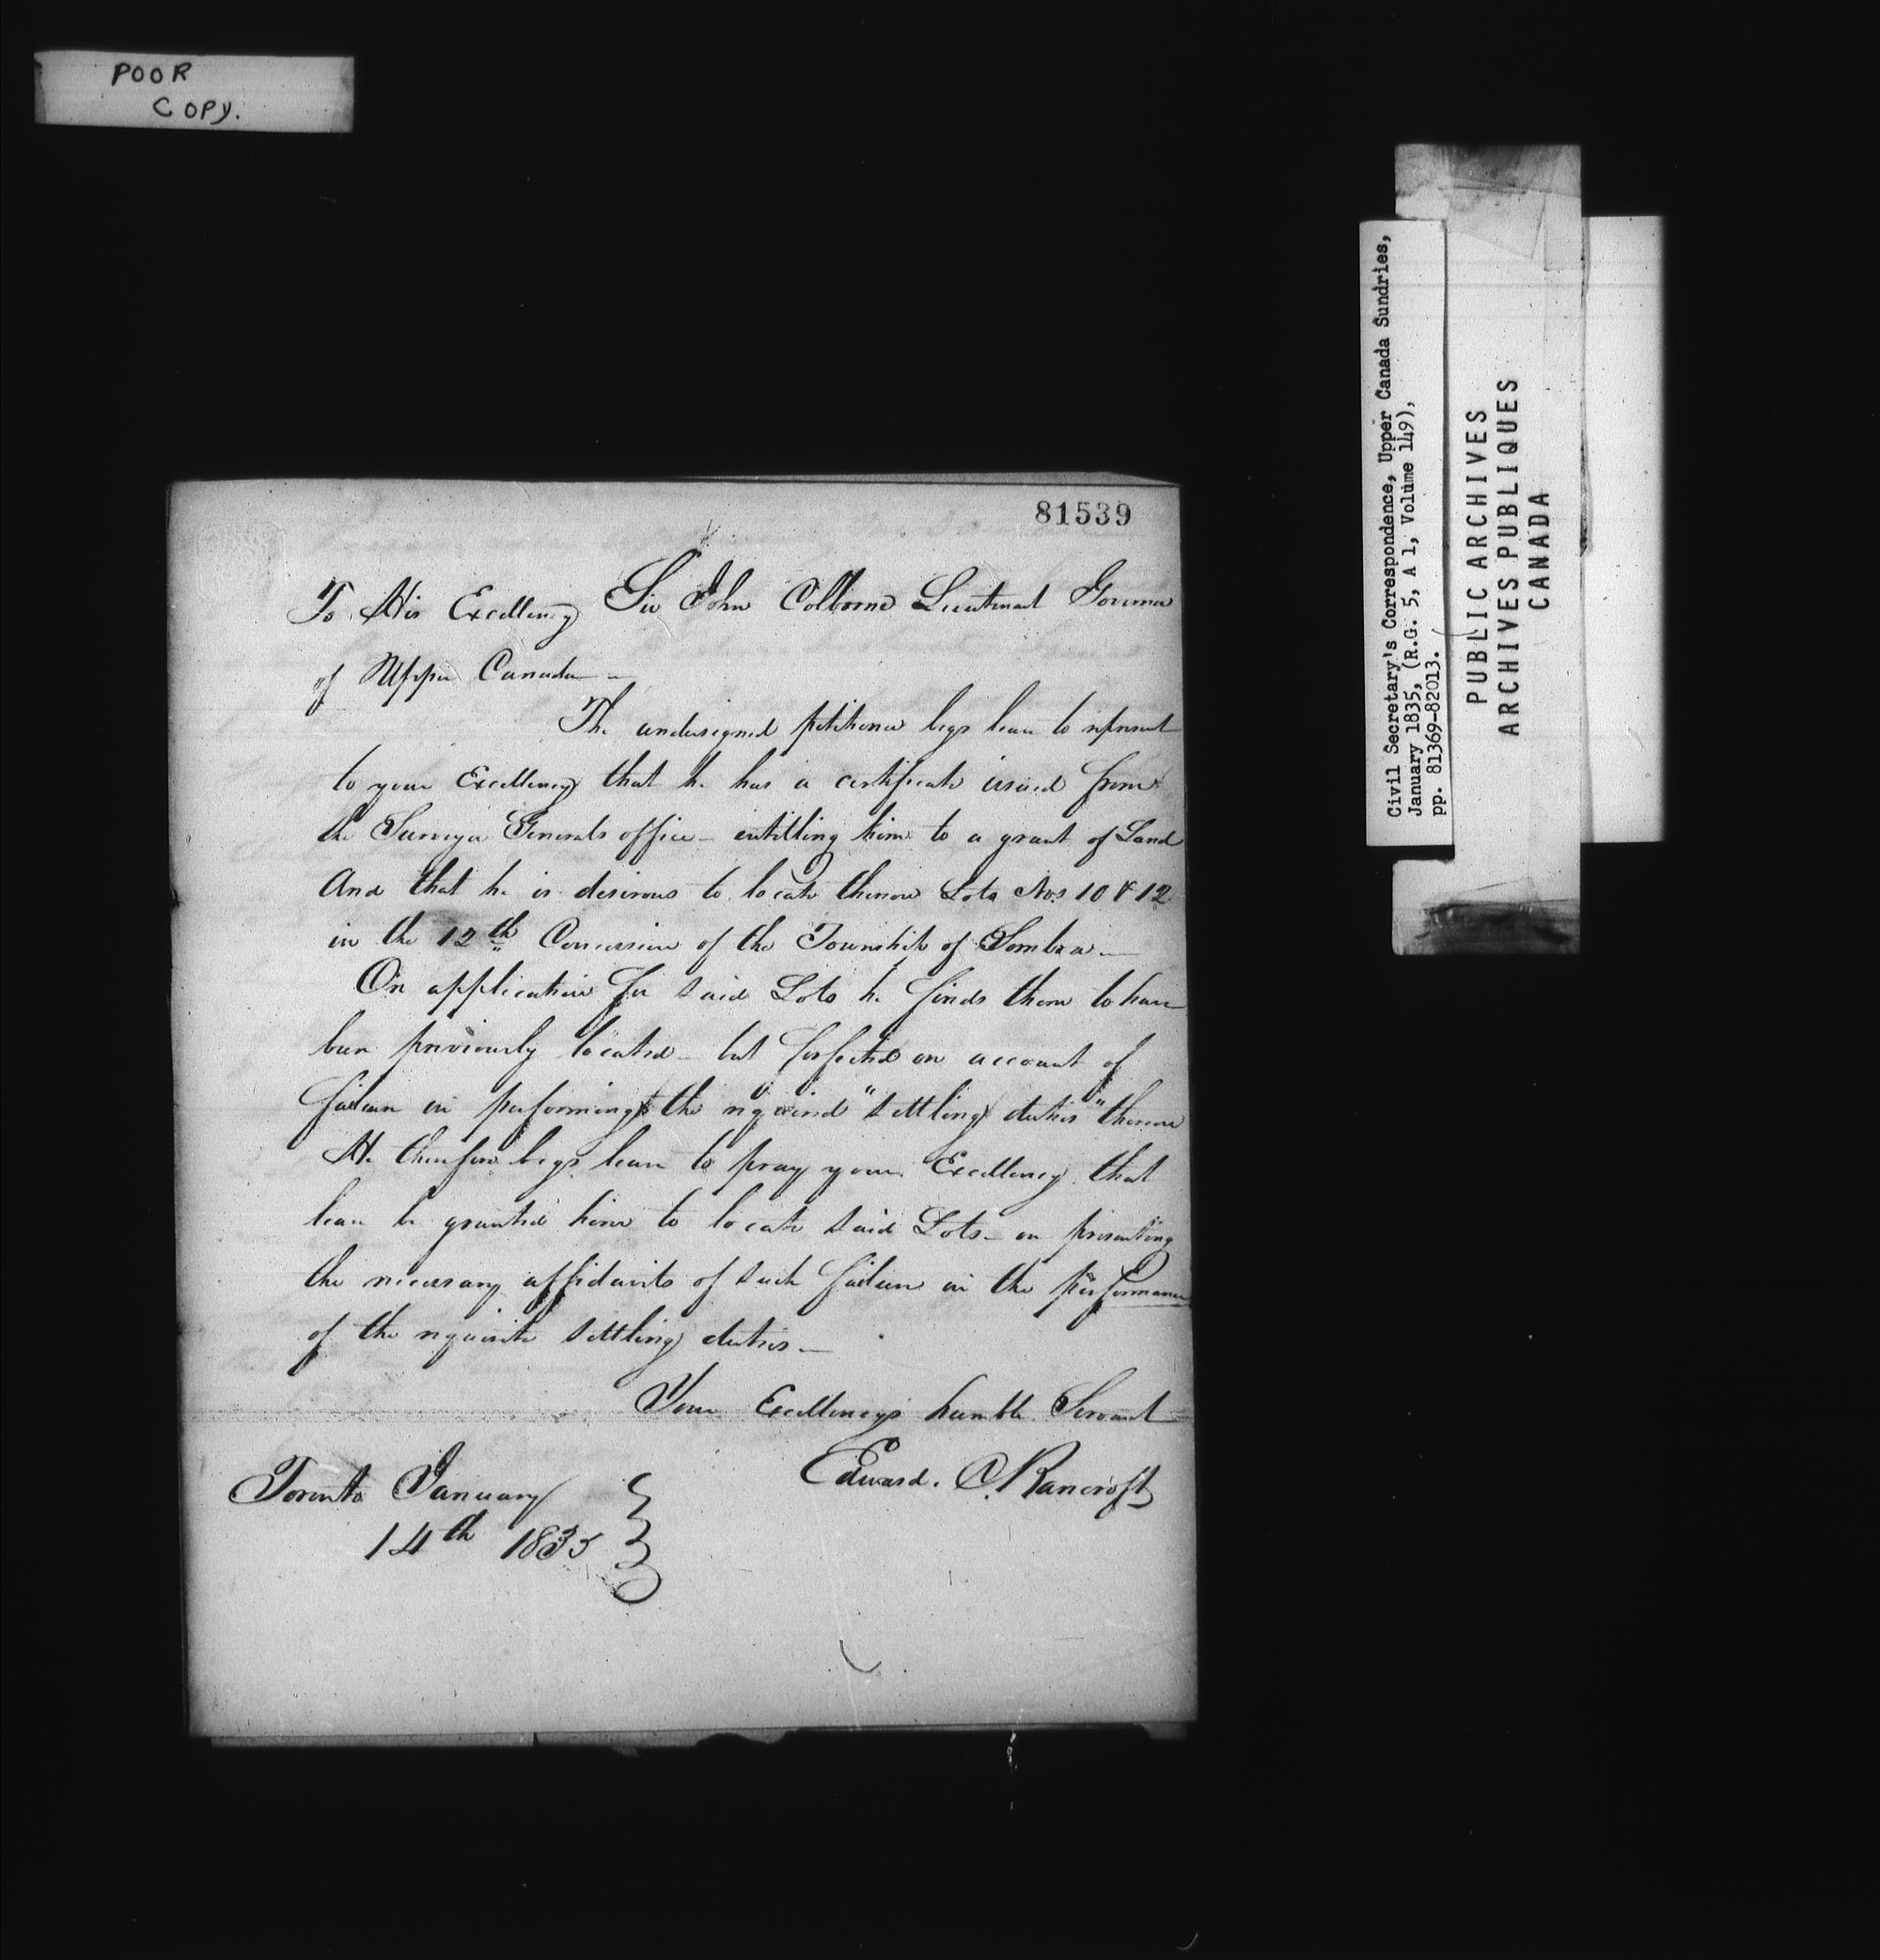 POOR
COPY.
81539
To His Excellency Sir John Colborne Lieutenant Governor
of Upper Canada —
The undersigned petitioner begs leave to represent
to your Excellency that he has a certificate issued from
the Surveyor Generals office — entitling him to a grant of Land
And that he is desirous to locate thereon Lots Nos 10 & 12
in the 12th Concession of the Township of Sombra —
On application for said Lots he finds them to have
been previously located — but forfeited on account of
failure in performing the required "settling duties" thereon
He therefore begs leave to pray your Excellency that
leave be granted him to locate said Lots — on presenting
the necessary affidavits of such failure in the performance
of the requisite settling duties —
Your Excellencys humble Servant
Edward. C. Bancroft
Toronto January
14th 1835
Civil Secretary's Correspondence, Upper Canada Sundries,
January 1835, (R.G. 5, A 1, Volume 149),
pp. 81369-82013.
PUBLIC ARCHIVES
ARCHIVES PUBLIQUES
CANADA